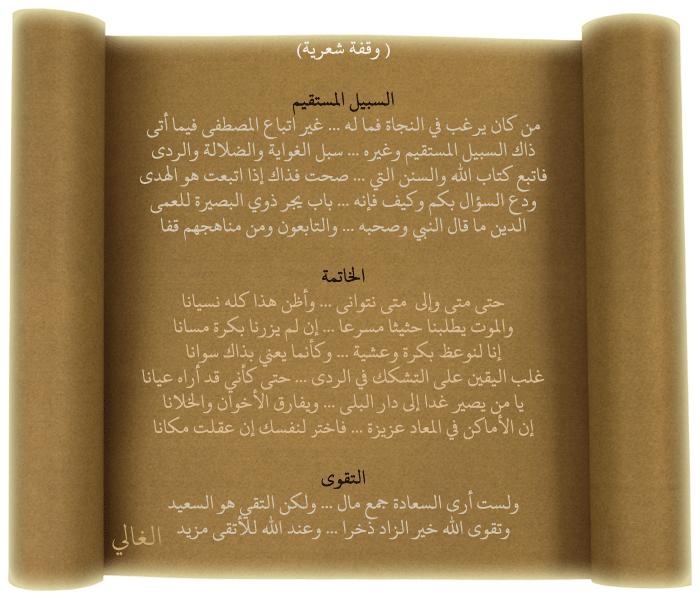 ( وقفة شعرية)
السبيل المستقيم
من كان يرغب في النجاة فما له ... غير اتباع المصطفى فيما أتى
ذاك السبيل المستقيم وغيره ... سبل الغواية والضلالة والردى
فاتبع كتاب الله والسنن التي ... صحت فذاك إذا اتبعت هو الهدى
ودع السؤال بكم وكيف فإنه ... باب يجر ذوي البصيرة للعمى
الدين ما قال النبي وصحبه ... والتابعون ومن مناهجهم قفا
الخاتمة
حتى متى وإلى متى نتوانى ... وأظن هذا كله نسيانا
والموت يطلبنا حثيثا مسرعا ... إن لم يزرنا بكرة مسانا
إنا لنوعظ بكرة وعشية ... وكأنما يعني بذاك سوانا
غلب اليقين على التشكك في الردى ... حتى كأني قد أراه عيانا
يا من يصير غدا إلى دار البلى ... ويفارق الأخوان والخلانا
إن الأماكن في المعاد عزيزة ... فاختر لنفسك إن عقلت مكانا
التقوى
ولست أرى السعادة جمع مال ... ولكن التقي هو السعيد
وتقوى الله خير الزاد ذخرا ... وعند الله للأتقى مزيد
الغالي